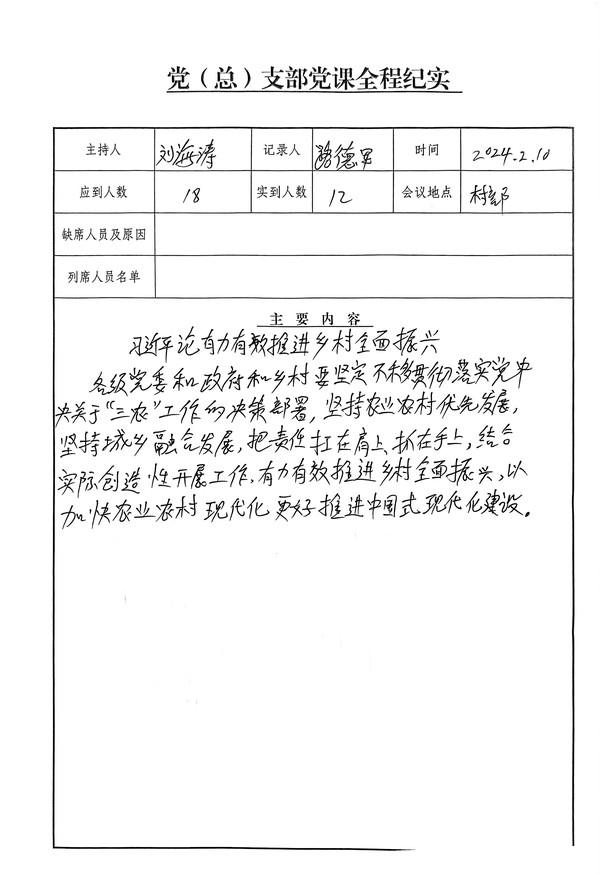 党（总）支部党课全程纪实
主持人 刘海涛 记录人 路德军 时间 2024.2.10
应到人数 18 实到人数 12 会议地点 村部
缺席人员及原因
列席人员名单
主要内容
习近平论有力有效推进乡村全面振兴
各级党委和政府和乡村要坚定不移贯彻落实党中
央关于“三农”工作的决策部署，坚持农业农村优先发展，
坚持城乡融合发展，把责任扛在肩上、抓在手上，结合
实际创造性开展工作，有力有效推进乡村全面振兴，以
加快农业农村现代化更好推进中国式现代化建设。